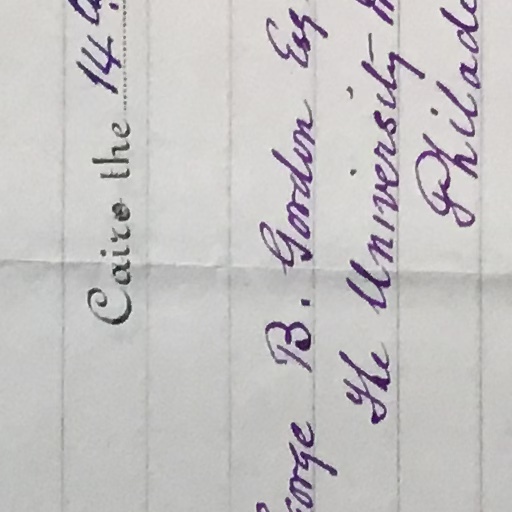 Cairo the 14th
eorge B. Gordon Esq
The University M
Philade